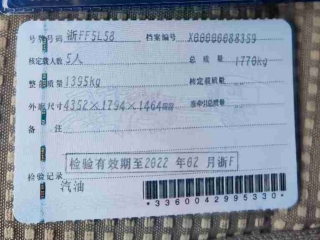 号牌号码 浙FF5L58 档案编号 X00000088359
核定载人数 5人 总质量 1770kg
整备质量 1395kg 核定载质量
外廓尺寸 4352×1794×1464mm 准牵引总质量
备注
检验有效期至2022年02月浙F
检验记录
汽油
*3360042995330*